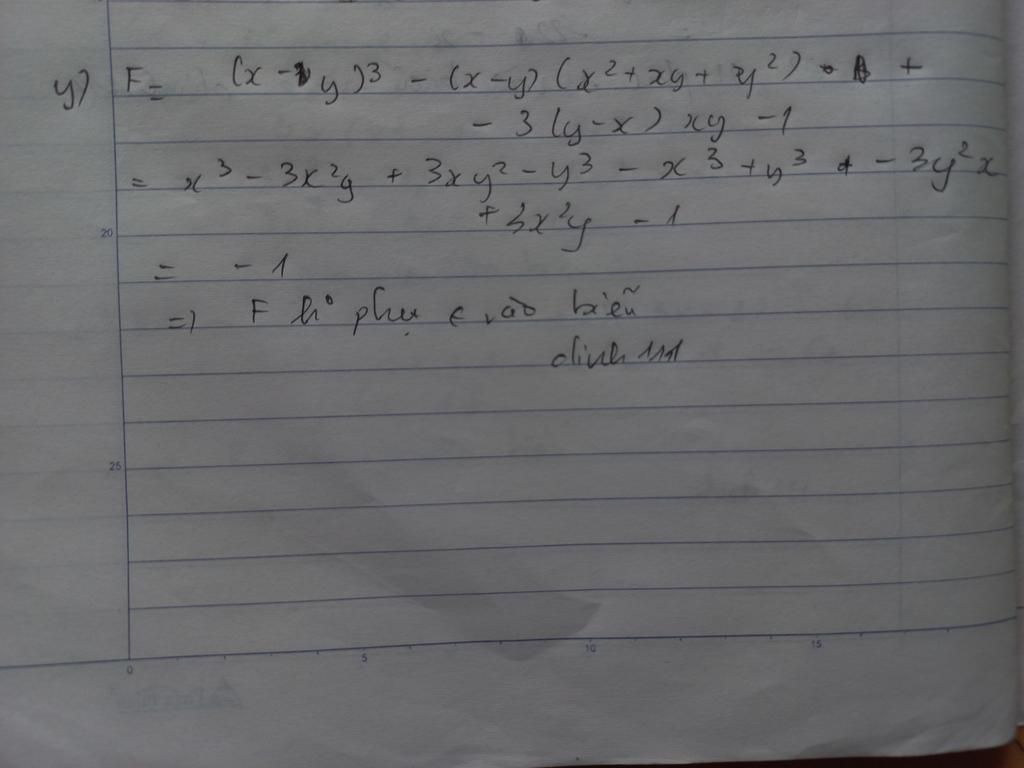 y) F = (x - y)³ - (x-y)(x²+xy+y²) +
- 3(y-x)xy - 1
= x³ - 3x²y + 3xy² - y³ - x³ + y³ - 3y²x
+ 3x²y - 1
20
= - 1
=) F k° phụ c vào biến
25
0 5 10 15